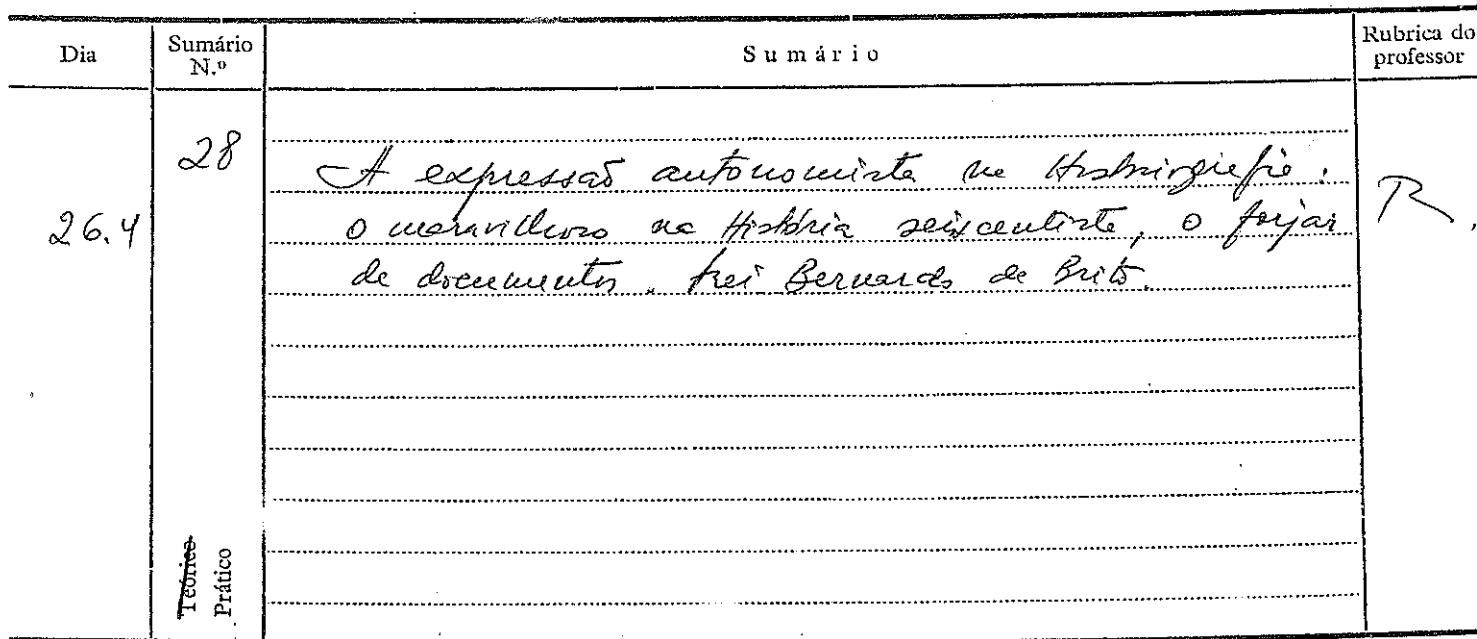 Dia Sumário N.º Sumário Rubrica do professor
28
A expressão autonomista na Historiografia:
26.4 o maravilhoso na História seiscentista, o forjar R.
de documentos. Frei Bernardo de Brito.
Teórico
Prático